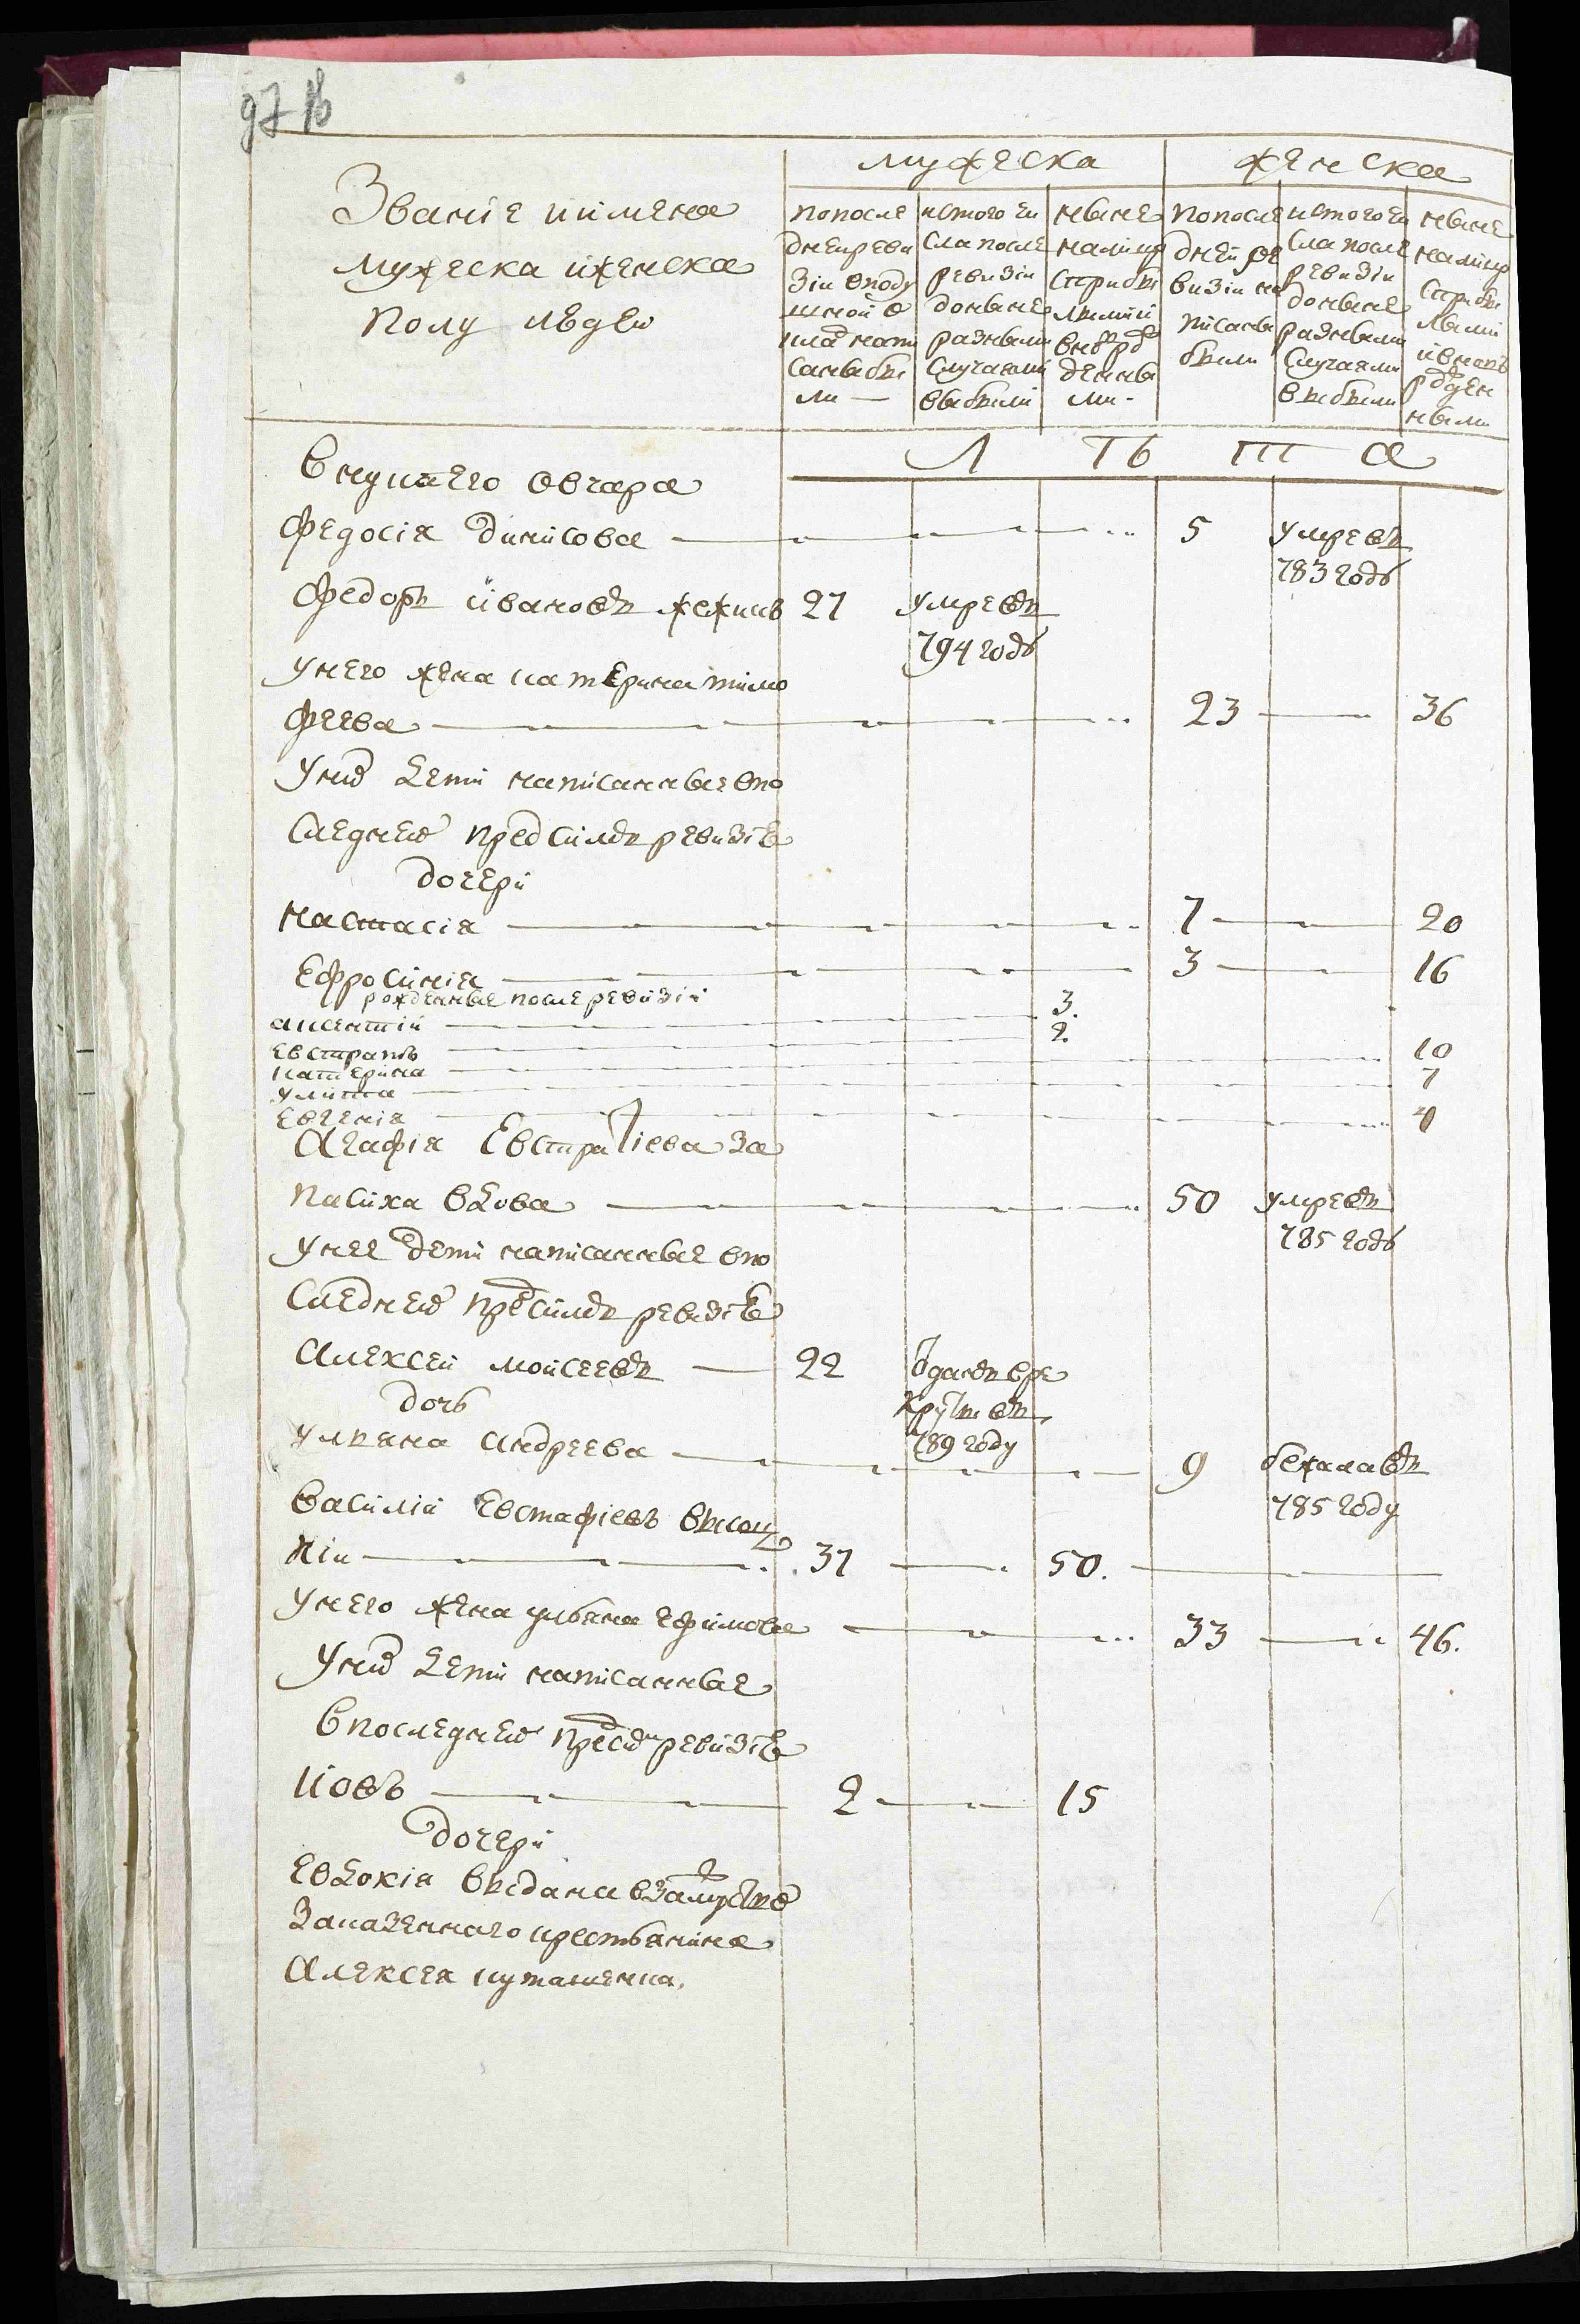 97 об
мужеска женска
Званіе иимена
мужеска иженска
полу людей
попосле
дней реви
зіи вподу
шной о
кладнапи
саныбы
ли —
изтого чи
сла после
ревизіи
доныне
разными
случаями
выбыли
ныне
налицо
сприбы
лыми и
вновь рож
денны
ми -
попосле
дней ре
визіи на
писаны
были
изтого чи
сла после
ревизіи
доныне
разными
случаями
выбыли
ныне
налицо
сприбы
лыми
ивновь
рожден
ными
Л Ѣ Т А
внукаего овчара
Федосія Динисова 5 умре въ
783 годѣ
Федоръ ивановъ 27 умре въ
794 годѣ
унего жена катерина тимо
феева 23 36
Унихъ дети написанные впо
следней предсимъ ревизіи
дочери
настасія 7 20
Ефросинія 3 16
рожденные после ревизіи
аксентий 3.
Евстратъ 2.
катерина 10
улита 7
Евгенія 4
Агафія Евстратіева за
пасиха вдова 50 умре въ
785 годѣ
унее дети написанные впо
следней предсимъ ревизіи
Алексей мойсеевъ 22 отданъ вре
круты въ
789 году
дочь
ульяна андреева 9 бежала въ
785 году
василій Евстафіевъ высоц
кій 37 50.
унего жена ульяна ефимова 33 46.
Унихъ дети написанные
впоследней предсимъ ревизіи
Иовъ 2 15
дочери
Евдокія выдана взамужство
заказенного крестьянина
Алексея